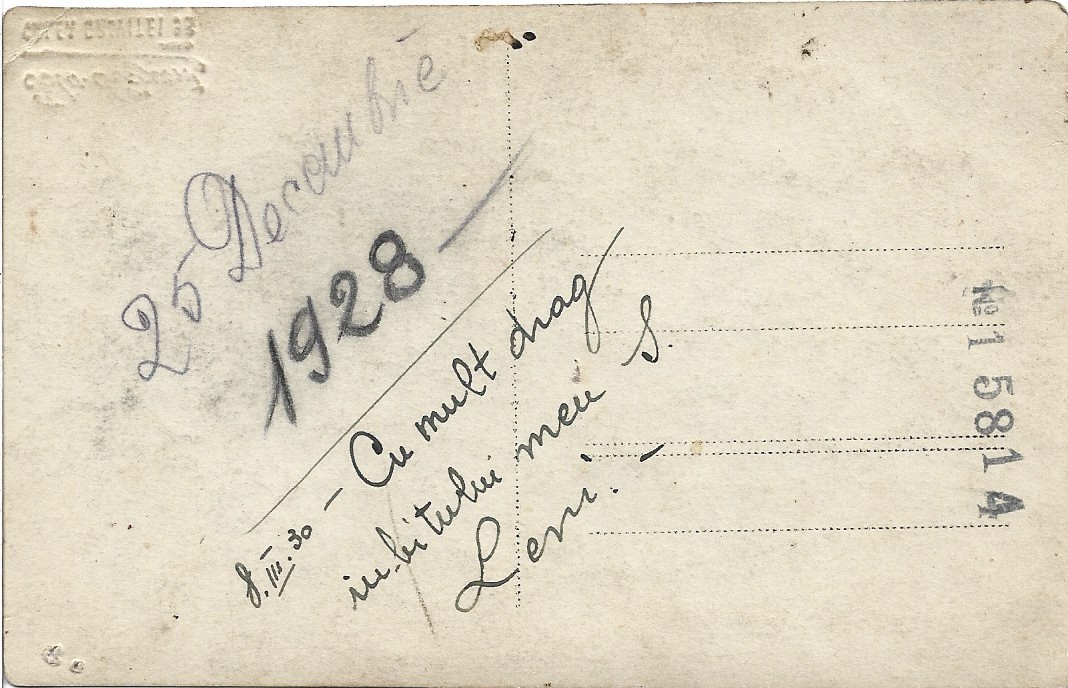 25 Decembrie
1928 —
8.III.30 — Cu mult drag
iubitului meu S.
Leni. —
№ 15814